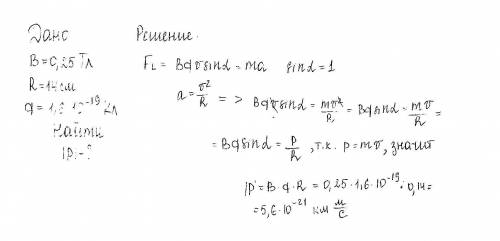 Дано Решение.
B=0,25 Тл
R=14см
q=1,6·10⁻¹⁹ Кл
Найти
|P|-?
Fл = Bqvsinα = ma sinα = 1
a = v²/R => Bqvsinα = mv²/R = Bqsinα = mv/R =
= Bqsinα = p/R, т.к. p = mv, значит
|P = B·q·R = 0,25·1,6·10⁻¹⁹·0,14=
= 5,6·10⁻²¹ кг м/с